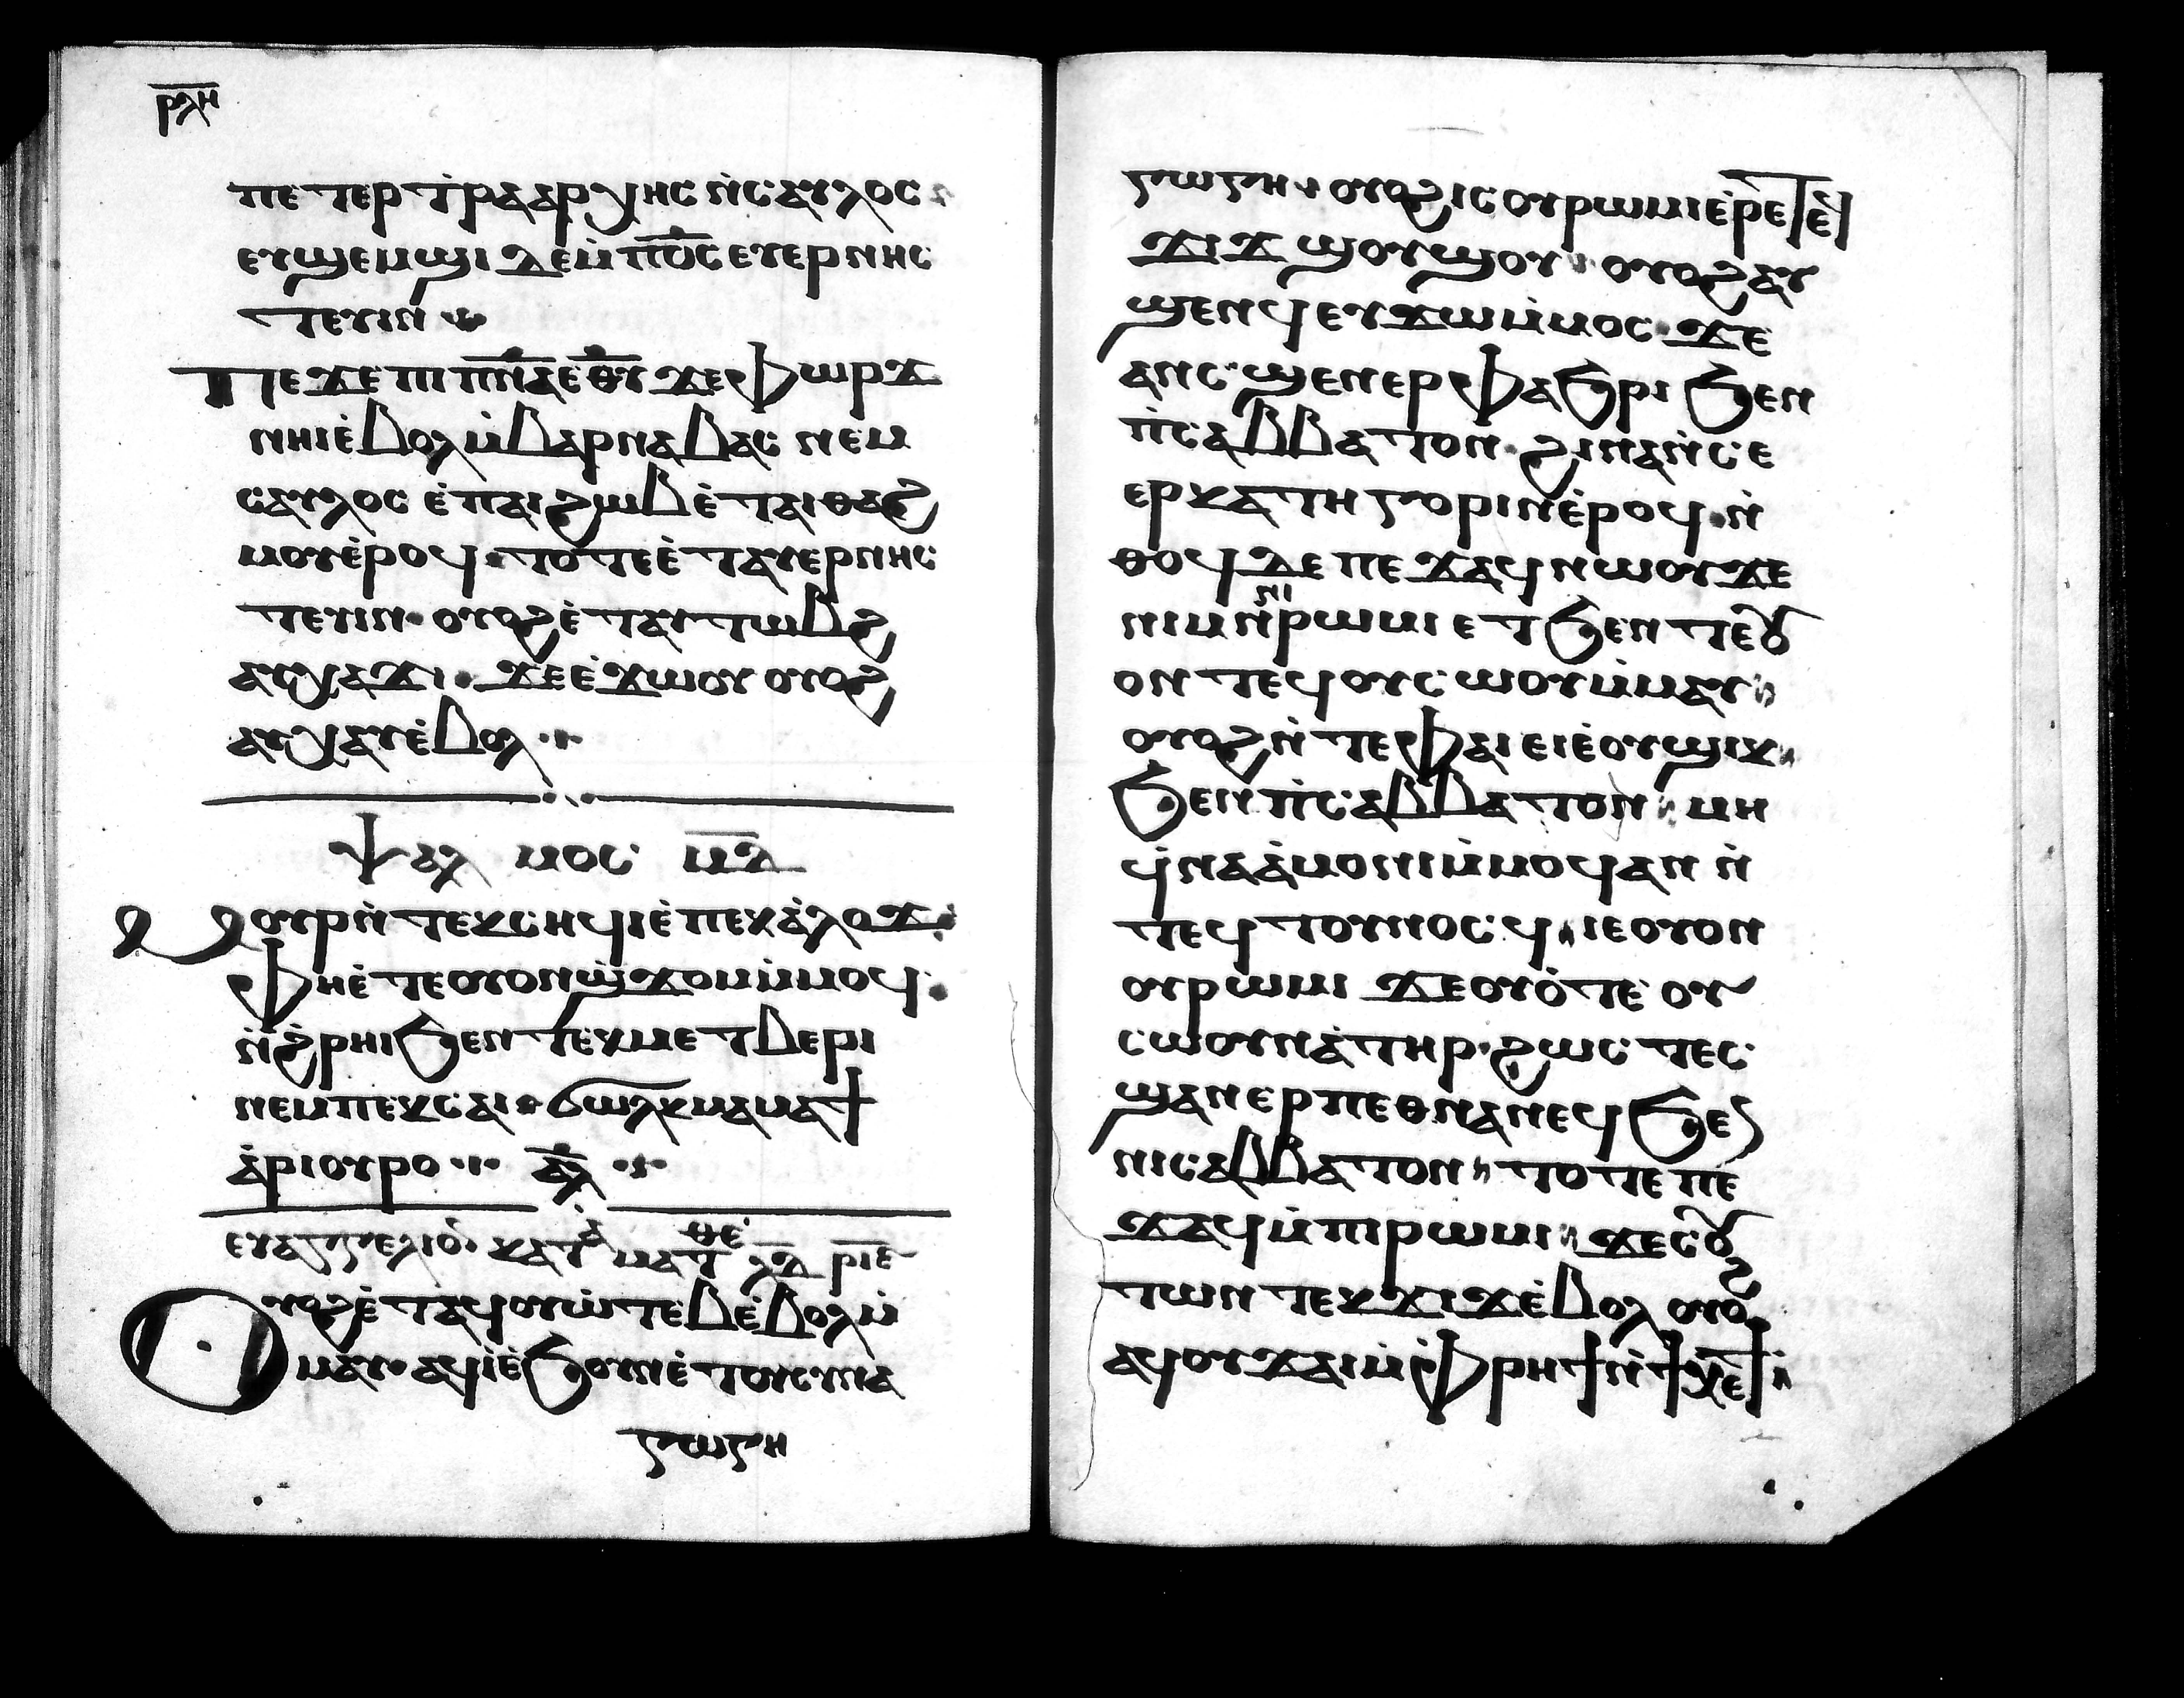 ⲣⲗⲏ
ⲡⲉⲧⲉⲣⲧⲣⲁⲁⲣⲭⲏⲥ ⲛ̇ⲥⲁⲩⲗⲟⲥ
ⲉⲩϣⲉⲙϣⲓ ⲇⲉⲙ̇ⲡⲟ̅ⲥ̅ ⲉⲩⲉⲣⲛⲏⲥ
ⲧⲉⲩⲓⲛ
Ⲡⲉϫⲉ ⲡⲓⲡⲛ̅ⲁ̅ ⲉⲑ̅ⲩ̅ ϫⲉ ⲫⲱⲣϫ
ⲛⲏⲓ ⲉ̇ⲃⲟⲗ ⲙ̇ⲃⲁⲣⲛⲁⲃⲁⲥ ⲛⲉⲙ
ⲥⲁⲩⲗⲟⲥ ⲉ̇ⲡⲁⲓϩⲱⲃ ⲉ̇ⲧⲁⲓⲑⲁϩ
ⲙⲟⲩ ⲉ̇ⲣⲟϥ ⲧⲟⲧⲉ ⲉ̇ⲧⲁⲩⲉⲣⲛⲏⲥ
ⲧⲉⲩⲓⲛ ⲟⲩⲟϩ ⲉ̇ⲧⲁⲩⲧⲱⲃϩ
ⲁⲩⲭⲁϫⲓϫ ⲉ̇ϫⲱⲟⲩ ⲟⲩⲟϩ
ⲁⲩⲭⲁⲩ ⲉ̇ⲃⲟⲗ
ⲯⲁⲗⲙⲟⲥ ⲙ̅ⲇ̅
Ⲙⲟⲩⲣ ⲛ̇ⲧⲉⲕⲥⲏϥⲓ ⲉ̇ⲡⲉⲕⲁ̇ⲗⲟϫ
ⲫⲏ ⲉ̇ⲧⲉ ⲟⲩⲟⲛϣ̇ϫⲟⲙ ⲙ̇ⲙⲟϥ
ⲛ̇ϩ̇ⲣⲏⲓ ϧⲉⲛ ⲧⲉⲕⲙⲉⲧⲃⲉⲣⲓ
ⲛⲉⲙ ⲡⲉⲕⲥⲁⲓ ϭⲱⲗⲕ ⲙⲁⲙⲁϯ
ⲁ̇ⲣⲓⲟⲩⲣⲟ ⲁ̅ⲗ̅
ⲉⲩⲁⲅⲅⲉⲗⲓⲟ ⲕⲁⲧⲁ ⲙⲁⲧⲑⲉ ⲗ̅ⲇ̅ ⲣ̅ⲓ̅ⲉ̅
Ⲟⲩⲟϩ ⲉ̇ⲧⲁϥⲟⲩⲱ̇ⲧⲉⲃ ⲉ̇ⲃⲟⲗ ⲙ̇
ⲙⲁⲩ ⲁϥⲓ̇ ⲉ̇ϧⲟⲩⲛ ⲉ̇ⲧⲟⲩⲥⲩⲛⲁ
ⲅⲱⲅⲏ
ⲅⲱⲅⲏ ⲟⲩⲟϩ ⲓⲥ ⲟⲩⲣⲱⲙⲓ ⲉ̇ⲣⲉ ⲧⲉϥ
ϫⲓϫ ϣⲟⲩⲱⲟⲩ ⲟⲩⲟϩ ⲁⲩ
ϣⲉⲛϥ ⲉⲩϫⲱ ⲙ̇ⲙⲟⲥ ϫⲉ
ⲁⲛ ⲥ̇ϣⲉ ⲛ̇ⲉⲣⲫⲁϧⲣⲓ ϧⲉⲛ
ⲡ̇ⲥⲁⲃⲃⲁⲧⲟⲛ ϩⲓⲛⲁ ⲛ̇ⲥⲉ
ⲉⲣⲕⲁⲧⲏⲅⲟⲣⲓⲛ ⲉ̇ⲣⲟϥ ⲛ̇
ⲑⲟϥ ⲇⲉ ⲡⲉϫⲁϥ ⲛⲱⲟⲩ ϫⲉ
ⲛⲓⲙ ⲛ̇ⲛⲓⲣⲱⲙⲓ ⲉⲧϧⲉⲛ ⲧⲉⲟⲩ
ⲟⲛⲧⲉϥ ⲟⲩⲉ̇ⲥⲱⲟⲩ ⲙ̇ⲙⲁⲩ
ⲟⲩⲟϩ ⲛ̇ⲧⲉ ⲫⲁⲓ ⲉⲓ ⲉ̇ⲟⲩϣⲓⲕ
ϧⲉⲛ ⲡ̇ⲥⲁⲃⲃⲁⲧⲟⲛ ⲙⲏ
ϥ̇ⲛⲁⲁ̇ⲙⲟⲛⲓ ⲙ̇ⲙⲟϥ ⲁⲛ ⲛ̇
ⲧⲉϥⲧⲟⲩⲛⲟⲥϥ ⲓⲉ ⲟⲩⲟⲛ
ⲟⲩⲣⲱⲙⲓ ϫⲉ ⲟⲩⲟ̇ⲧⲉ ⲟⲩ
ⲥⲱⲟⲩ ⲛⲁ̇ⲧⲏⲣ ϩⲱⲥⲧⲉ ⲥ
ϣⲁⲛⲉⲣⲡⲉⲑⲛⲁⲛⲉϥ ϧⲉⲛ
ⲛⲓⲥⲁⲃⲃⲁⲧⲟⲛ ⲧⲟⲧⲉ ⲡⲉ
ϫⲁϥ ⲙ̇ⲡⲓⲣⲱⲙⲓ ϫⲉ ⲥⲟⲩ
ⲧⲱⲛ ⲧⲉⲕϫⲓϫ ⲉ̇ⲃⲟⲗ ⲟⲩⲟϩ
ⲁϥⲟⲩϫⲁⲓ ⲙ̇ⲫⲣⲏϯ ⲛ̇ϯⲭⲉϯ